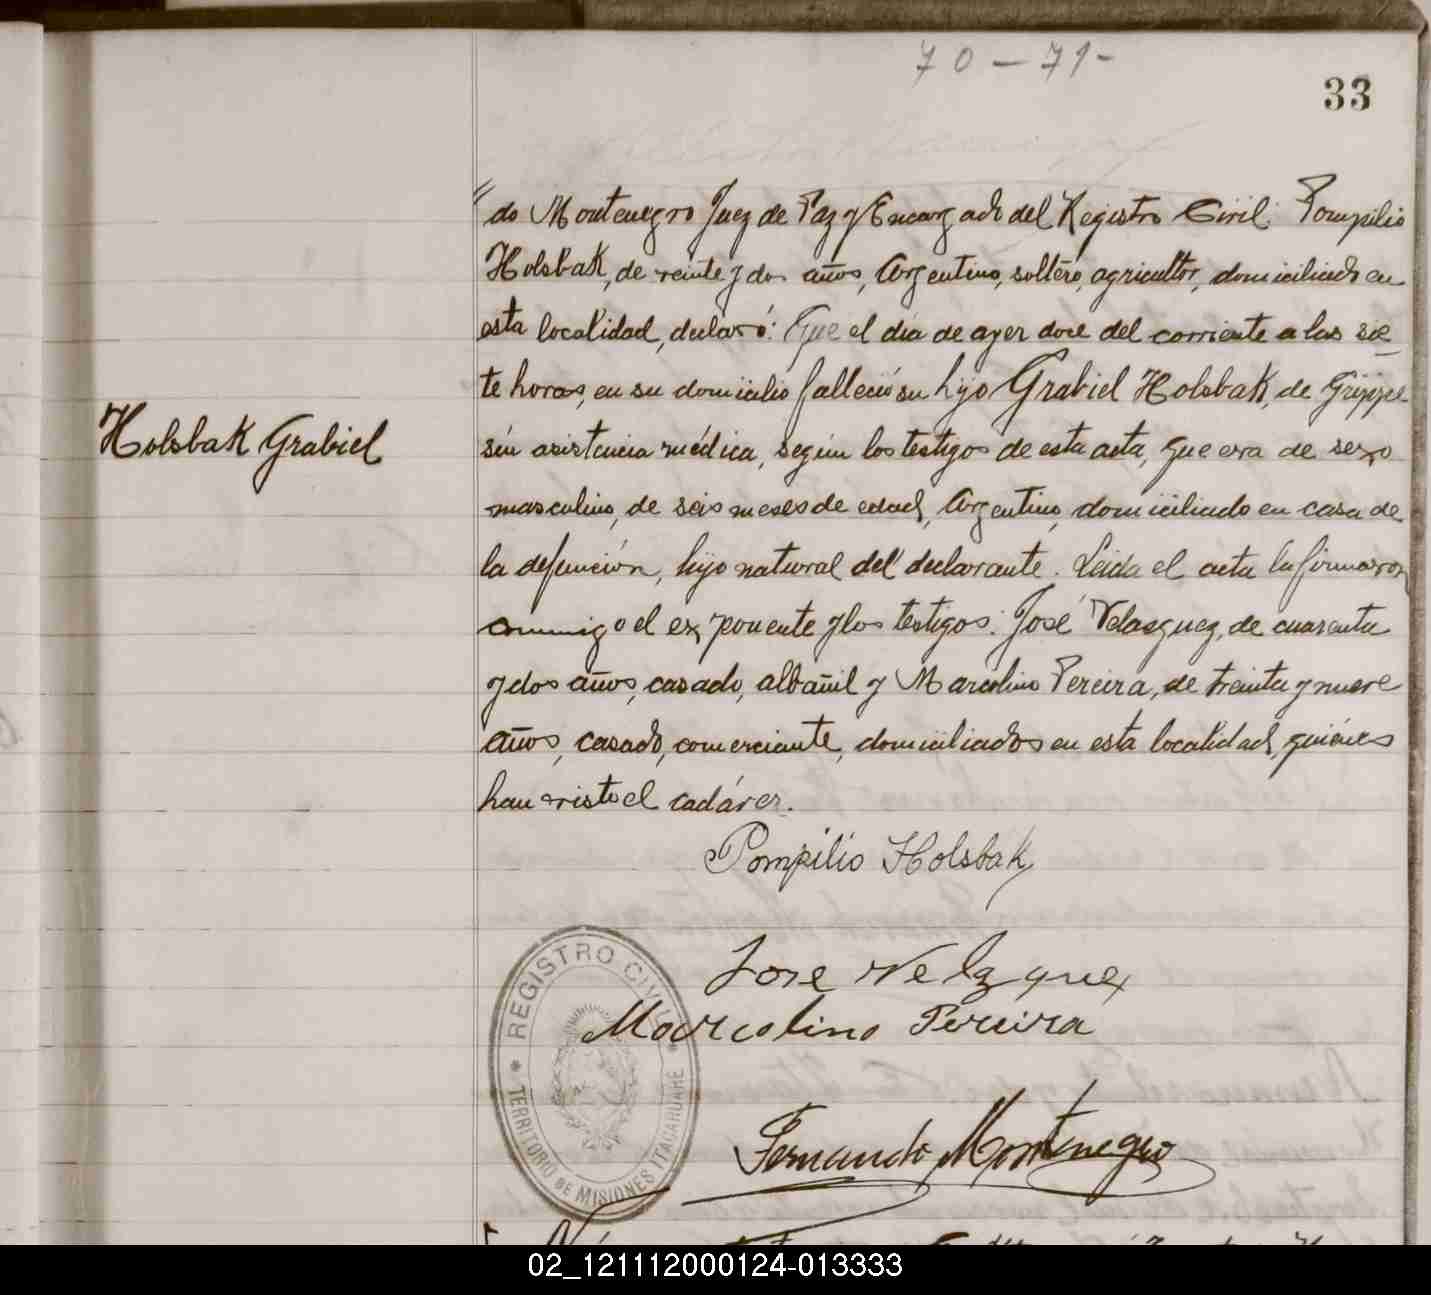 70-71-
33
do Montenegro Juez de Paz y Encargado del Registro Civil: Pompilio
Holsbak, de veinte y dos años, Argentino, soltero, agricultor, domiciliado en
esta localidad, declaró: Que el día de ayer doce del corriente a las sie
te horas, en su domicilio falleció su hijo Grabiel Holsbak, de Grippe
Holsbak Grabiel
sin asistencia médica, según los testigos de esta acta, que era de sexo
masculino, de seis meses de edad, Argentino, domiciliado en casa de
la defunción, hijo natural del declarante. Leída el acta la firmaron
conmigo el exponente y los testigos: José Velasquez, de cuarenta
y dos años, casado, albañil y Marcolino Pereira, de treinta y nueve
años, casado, comerciante, domiciliados en esta localidad, quiénes
han visto el cadáver.
Pompilio Holsbak
Jose Velzquez
Marcolino Pereira
REGISTRO CIVIL
TERRITORIO DE MISIONES ITAKARUARÉ
Fernando Montenegro
02_121112000124-013333